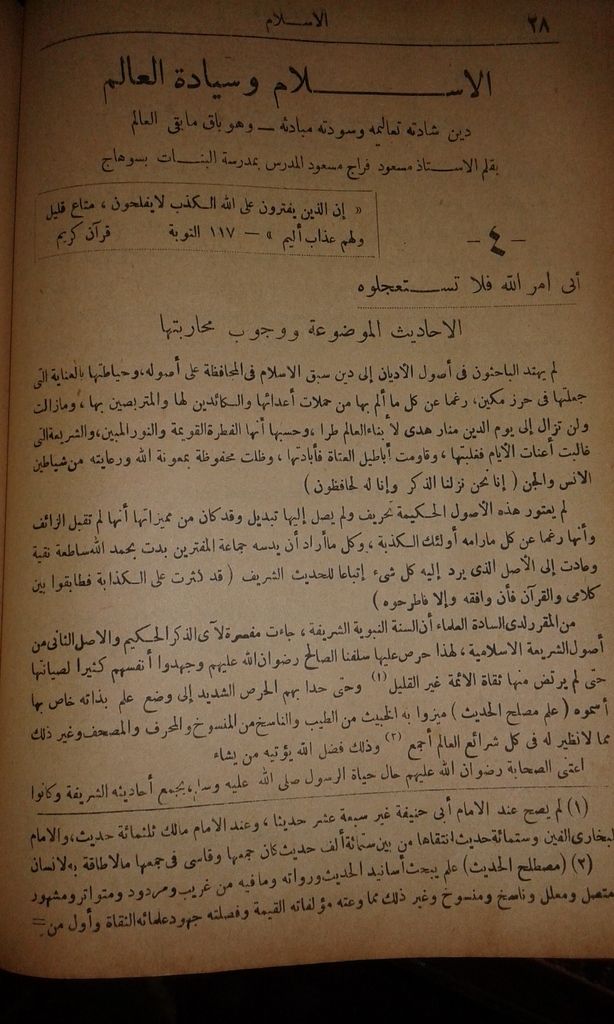 ٢٨
الاسلام
الاسلام وسيادة العالم
دين شادته تعاليمه وسودته مبادئه — وهو باق ما بقى العالم
بقلم الاستاذ مسعود فراج مسعود المدرس بمدرسة البنات بسوهاج
« إن الذين يفترون على الله الكذب لايفلحون ، متاع قليل
ولهم عذاب أليم » — ١١٧ التوبة قرآن كريم
— ٤ —
أتى أمر الله فلا تستعجلوه
الاحاديث الموضوعة ووجوب محاربتها
لم يهتد الباحثون فى أصول الأديان إلى دين سبق الاسلام فى المحافظة على أصوله، وحياطتها بالعناية التى
جعلتها فى حرز مكين، رغما عن كل ما ألم بها من حملات أعدائها والكائدين لها والمتربصين بها ، ومازالت
ولن تزال إلى يوم الدين منار هدى لأبناء العالم طرا ، وحسبها أنها الفطرة القويمة والنور المبين، والشريعة التى
غالبت أعنات الأيام فغلبتها ، وقاومت أباطيل العتاة فأبادتها ، وظلت محفوظة بمعونة الله ورعايته من شياطين
الانس والجن ( إنا نحن نزلنا الذكر وإنا له لحافظون )
لم يعتور هذه الأصول الحكيمة تحريف ولم يصل إليها تبديل وقد كان من مميزاتها أنها لم تقبل الزائف
وأنها رغما عن كل مارامه أولئك الكذبة ، وكل ما أراد أن يدسه جماعة المفترين بدت بحمد الله ساطعة نقية
وعادت إلى الأصل الذى يرد إليه كل شىء إتباعا للحديث الشريف ( قد كثرت على الكذابة فطابقوا بين
كلامى والقرآن فأن وافقه وإلا فاطرحوه )
من المقرر لدى السادة العلماء أن السنة النبوية الشريفة ، جاءت مفسرة لآى الذكر الحكيم والاصل الثانى من
أصول الشريعة الاسلامية ، لهذا حرص عليها سلفنا الصالح رضوان الله عليهم وجهدوا أنفسهم كثيرا لصيانتها
حتى لم يرتض منها ثقاة الائمة غير القليل (١) وحتى حدا بهم الحرص الشديد إلى وضع علم بذاته خاص بها
أسموه ( علم مصلح الحديث ) ميزوا به الخبيث من الطيب والناسخ من المنسوخ والمحرف والمصحف وغير ذلك
مما لانظير له فى كل شرائع العالم أجمع (٢) وذلك فضل الله يؤتيه من يشاء
اعتنى الصحابة رضوان الله عليهم حال حياة الرسول صلى الله عليه وسلم، بجمع أحاديثه الشريفة وكانوا
(١) لم يصح عند الامام أبى حنيفة غير سبعة عشر حديثا ، وعند الامام مالك ثلثمائة حديث، والامام
البخارى الفين وستمائة حديث انتقاها من بين ستمائة ألف حديث كان جمعها وقاسى فى جمعها مالا طاقة به لانسان
(٢) (مصطلح الحديث) علم يبحث أسانيد الحديث ورواته وما فيه من غريب ومردود ومتواتر ومشهور
متصل ومعلل وناسخ ومنسوخ وغير ذلك مما وعته مؤلفاته القيمة وفصلته جهود علمائه الثقاة وأول من =